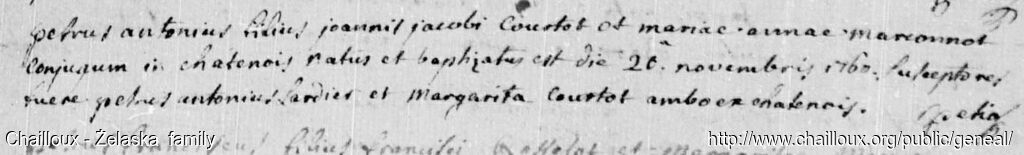 petrus antonius filius joannis jacobi Courtot et mariae annae marconnot
conjugum in chatenois natus et baptizatus est die 26a novembris 1760. Susceptores
fuere petrus antonius Sardier et Margarita Courtot ambo ex chatenois.
Chailloux - Żelaska family
http://www.chailloux.org/public/geneal/
filius francisci